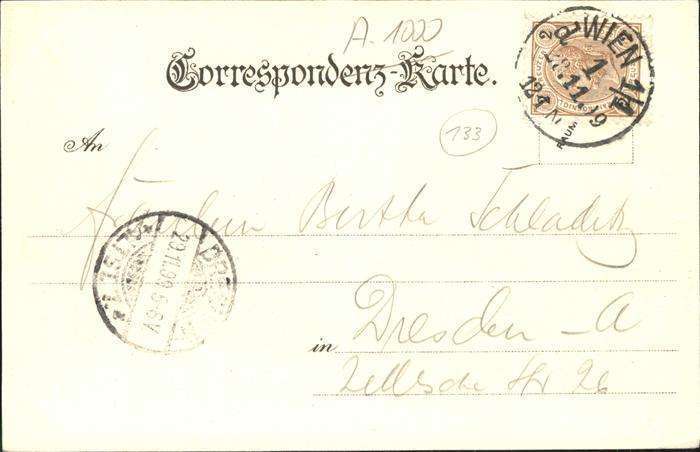 A. 1000
Correspondenz-Karte.
WIEN
1
133
An
Fräulein Bertha Schladitz
20.11.99.5-6V
in Dresden-A
Zellesche Str 26